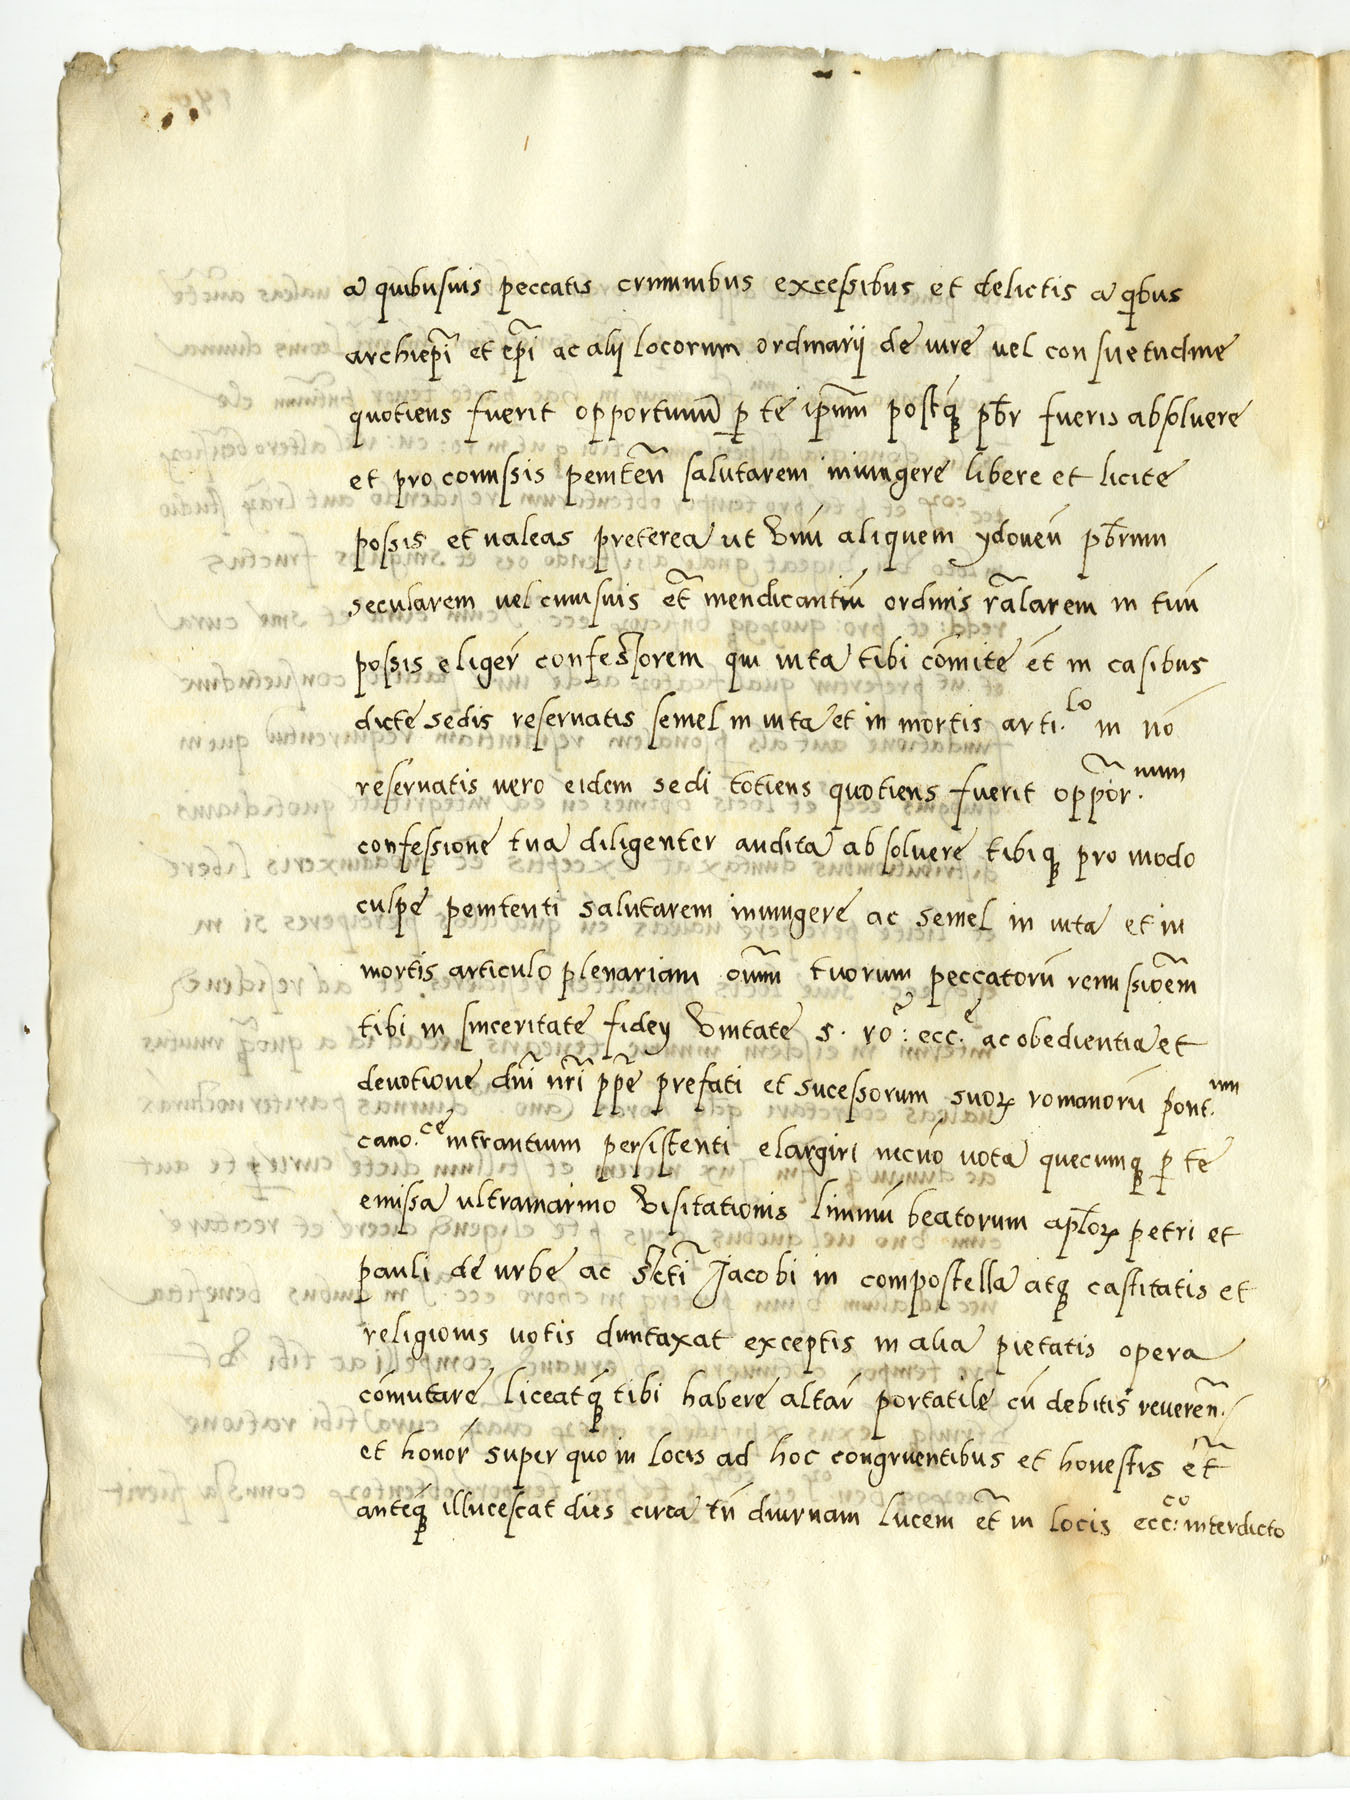 a quibusuis peccatis criminibus excessibus et delictis a qbus
archiepi͂ et epi͂ ac alij locorum ordinarij de iure uel consuetudine
quotiens fuerit opportunū p te ipm̄ postq̃ꝫ pbr̄ fueris absoluere
et pro comissis penitēn salutarem iniungere libere et licite
possis et ualeas preterea ut Vnū aliquem ydoneū pbr̄um
secularem uel cuiusuis et͂ mendicantiū ordinis r͂alarem in tuū
possis eligēr confessorem qui inta tibi cōmite ēt in casibus
dicte sedis reseruatis semel in uita et in mortis arti.ˡᵒ in nō
reseruatis uero eidem sedi totiens quotiens fuerit oppo͂r.ⁿᵘᵐ
confessione tua diligenter audita absoluere tibiqꝫ pro modo
culpe penitenti salutarem iniungere ac semel in uita et in
mortis articulo plenariam oīum tuorum peccatorū remissioēm
tibi in sinceritate fidey Vnitate s. roᵉ: ecc.ᵉ ac obedientia et
deuotione dn͂i nr͂i pp͂e prefati et sucessorum suoꝝ romanorū pont.ᵘᵐ
cano.ᶜᵉ intrantium persistenti elargiri necnō uota quecumqꝫ p te
emissa ultramarino Visitationis liminū beatorum aplōꝝ petri et
pauli de urbe ac sct͂i Jacobi in compostella atqꝫ castitatis et
religionis uotis duntaxat exceptis in alia pietatis opera
cōmutare liceatq̃ꝫ tibi habere altār portatile cū debitis reueren͂.
et honōr super quo in locis ad hoc congruentibus et honestis ēt͂
anteq̃ꝫ illucescat dies circa tn̄ diurnam lucem et͂ in locis ecc:ᶜᵒ interdicto